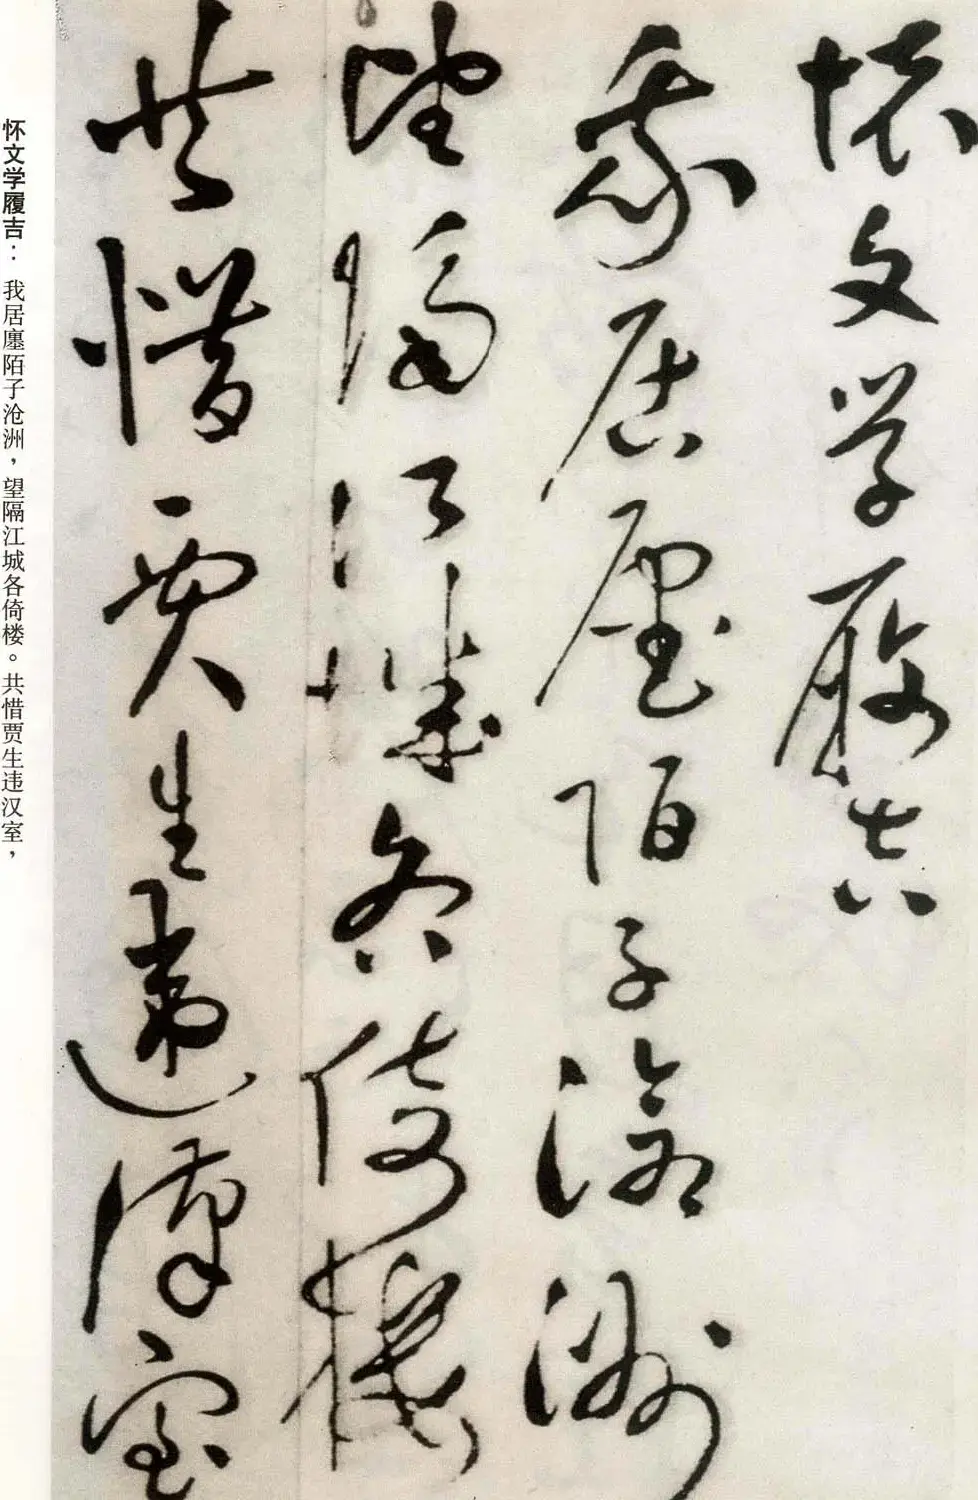 懐文学履吉
我居廛陌子滄洲
望隔江城各倚楼
共惜賈生違漢室
怀文学履吉：我居廛陌子沧洲，望隔江城各倚楼。共惜贾生违汉室，